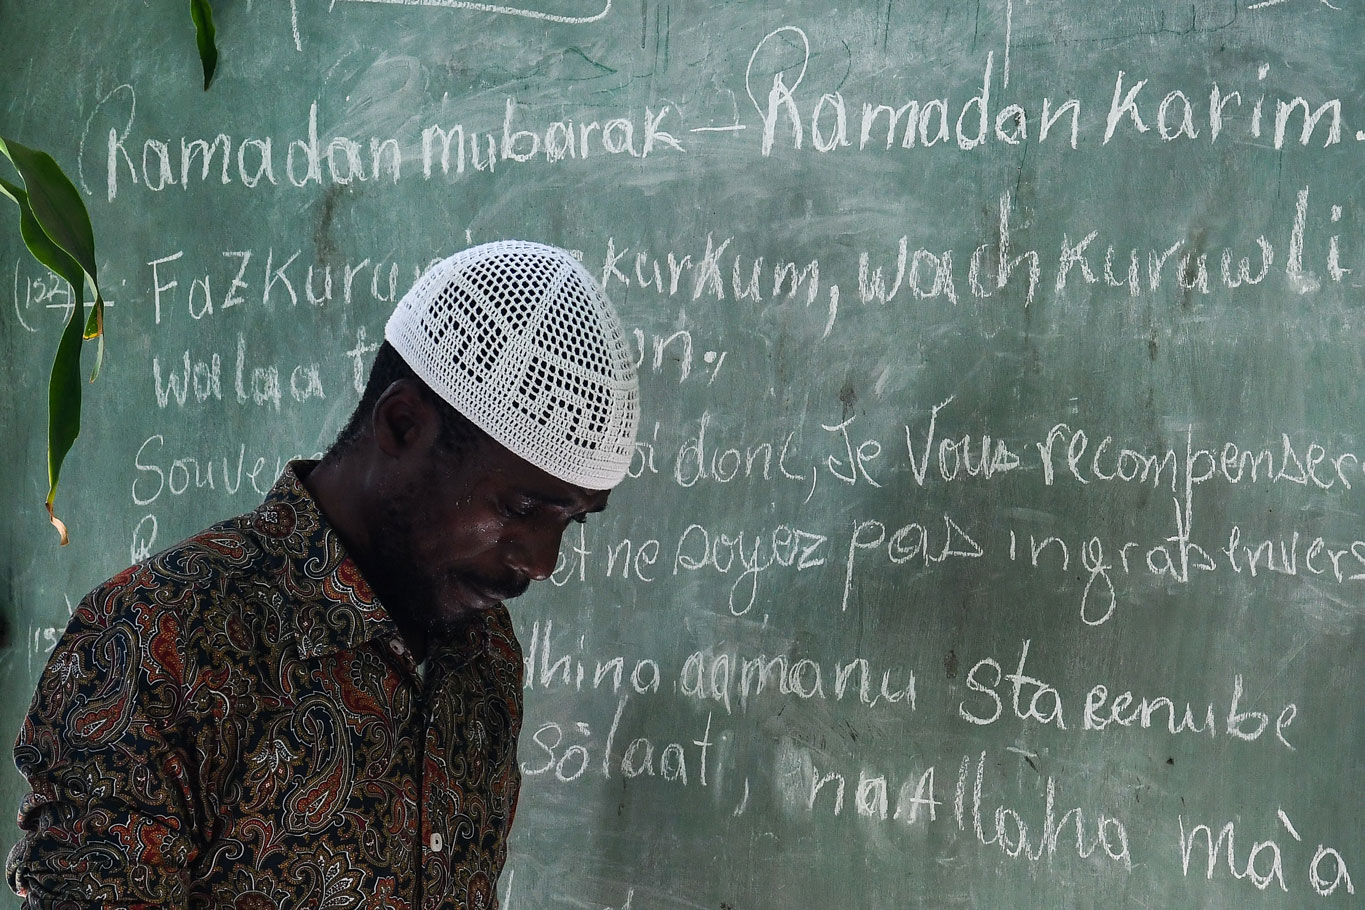 Ramadan mubarak – Ramadan Karim.
(152) Fazkuru kurkum, wachkuruwli
walaa t un.
Souve oi donc, Je Vous récompenser
R et ne soyez pas ingrats envers
(15 dhina aamanu Staeenube
Sòlaat, naAllaha ma'a